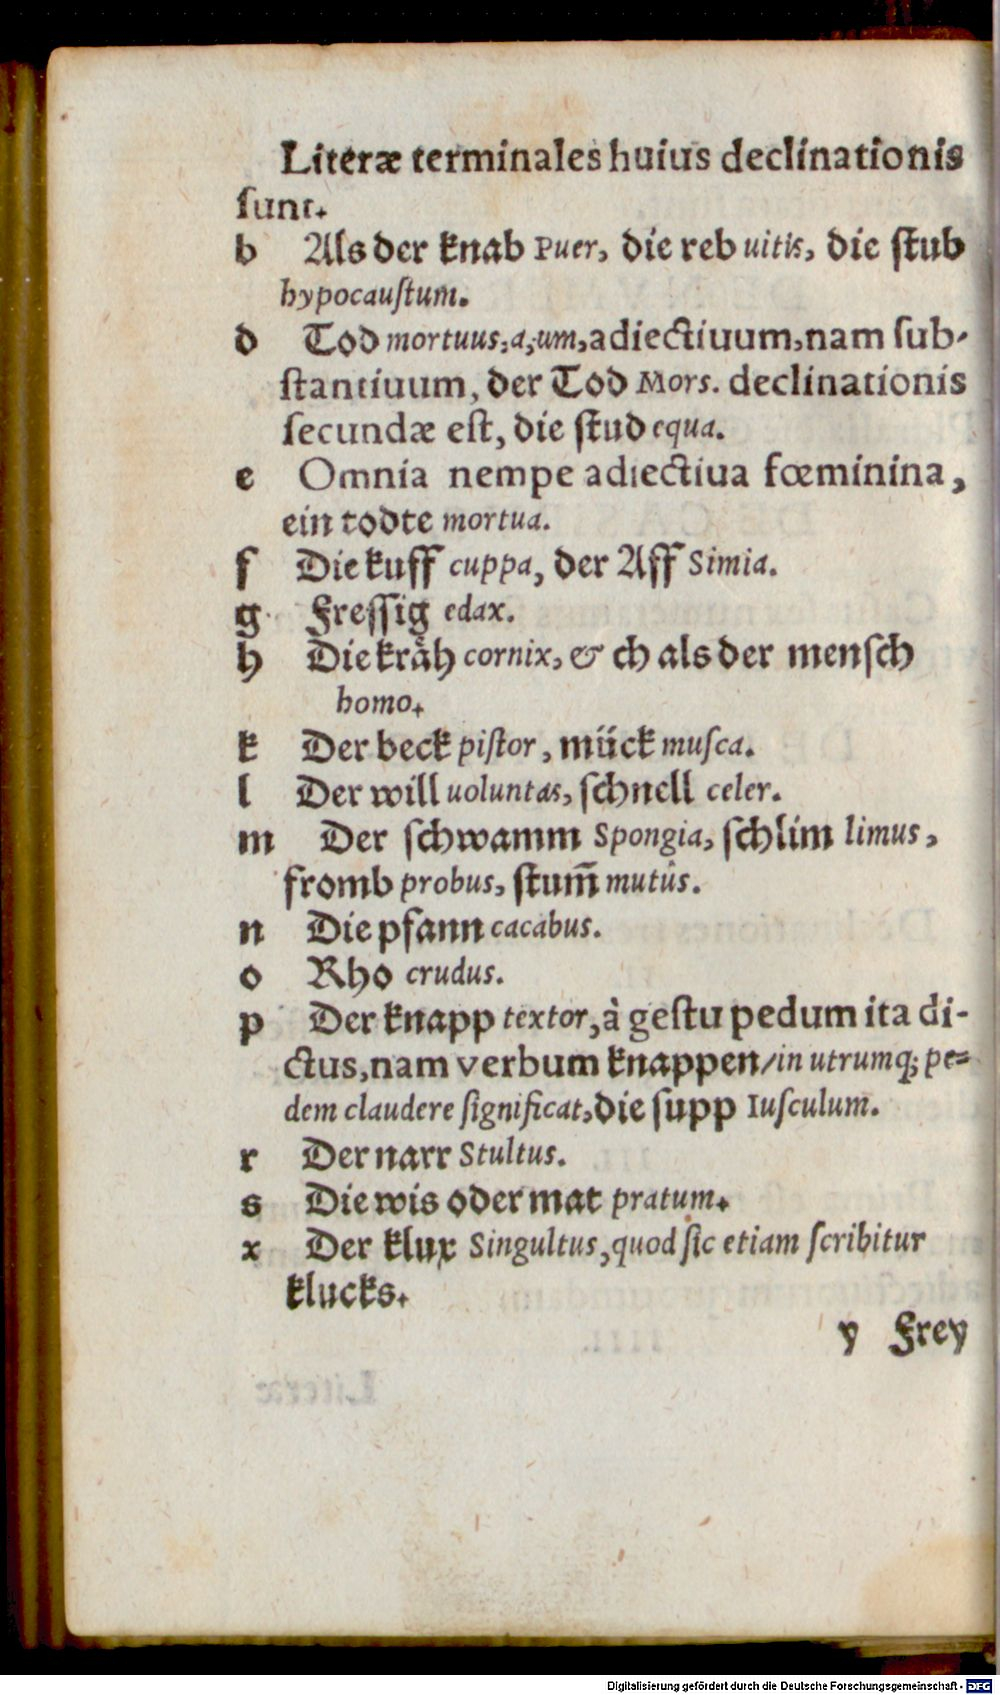 Literæ terminales huius declinationis
ſunt.
b Als der knab Puer, die reb uitis, die ſtub
hypocauſtum.
d Tod mortuus,a,um,adiectiuum,nam ſub-
ſtantiuum, der Tod Mors. declinationis
ſecundæ eſt, die ſtud equa.
e Omnia nempe adiectiua fœminina,
ein todte mortua.
f Die kuff cuppa, der Aff Simia.
g Freſſig edax.
h Die kråh cornix, & ch als der menſch
homo.
k Der beck piſtor, mück muſca.
l Der will uoluntas, ſchnell celer.
m Der ſchwamm Spongia, ſchlim limus,
fromb probus, ſtum̃ mutus.
n Die pfann cacabus.
o Rho crudus.
p Der knapp textor, à geſtu pedum ita di-
ctus,nam verbum knappen/in utrumq; pe-
dem claudere ſignificat,die ſupp Iuſculum.
r Der narr Stultus.
s Die wis oder mat pratum.
x Der klux Singultus,quod ſic etiam ſcribitur
klucks.
y Frey
Digitalisierung gefördert durch die Deutsche Forschungsgemeinschaft - DFG